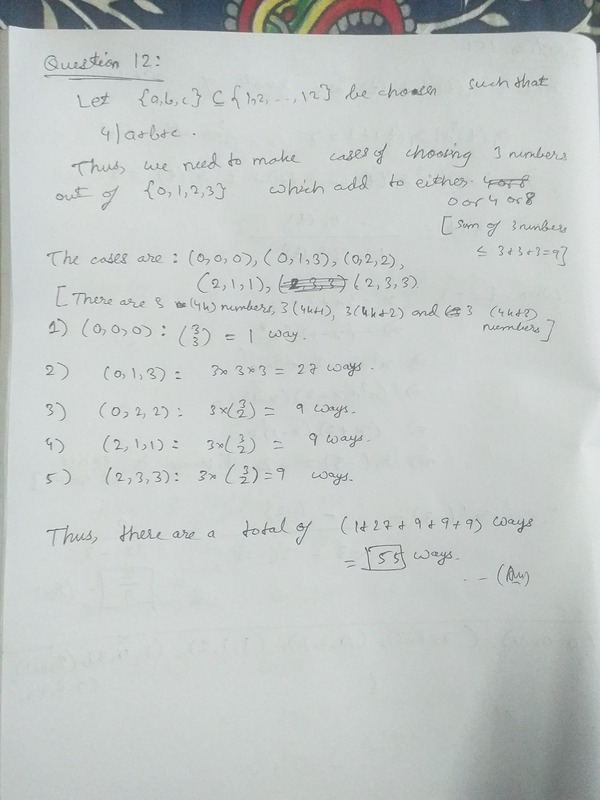 Question 12:
Let {a,b,c} ⊆ {1,2,...,12} be chosen such that
4|a+b+c.
Thus, we need to make cases of choosing 3 numbers
out of {0,1,2,3} which add to either 4 or 8
0 or 4 or 8
[sum of 3 numbers
≤ 3+3+3=9]
The cases are: (0,0,0), (0,1,3), (0,2,2),
(2,1,1), (2,3,3) (2,3,3)
[There are 3 (4k) numbers, 3(4k+1), 3(4k+2) and 3 (4k+3)
numbers]
1) (0,0,0): (3/3) = 1 way.
2) (0,1,3): 3×3×3 = 27 ways.
3) (0,2,2): 3×(3/2) = 9 ways.
4) (2,1,1): 3×(3/2) = 9 ways.
5) (2,3,3): 3×(3/2) = 9 ways.
Thus, there are a total of (1+27+9+9+9) ways
= 55 ways.
-- (Ans)